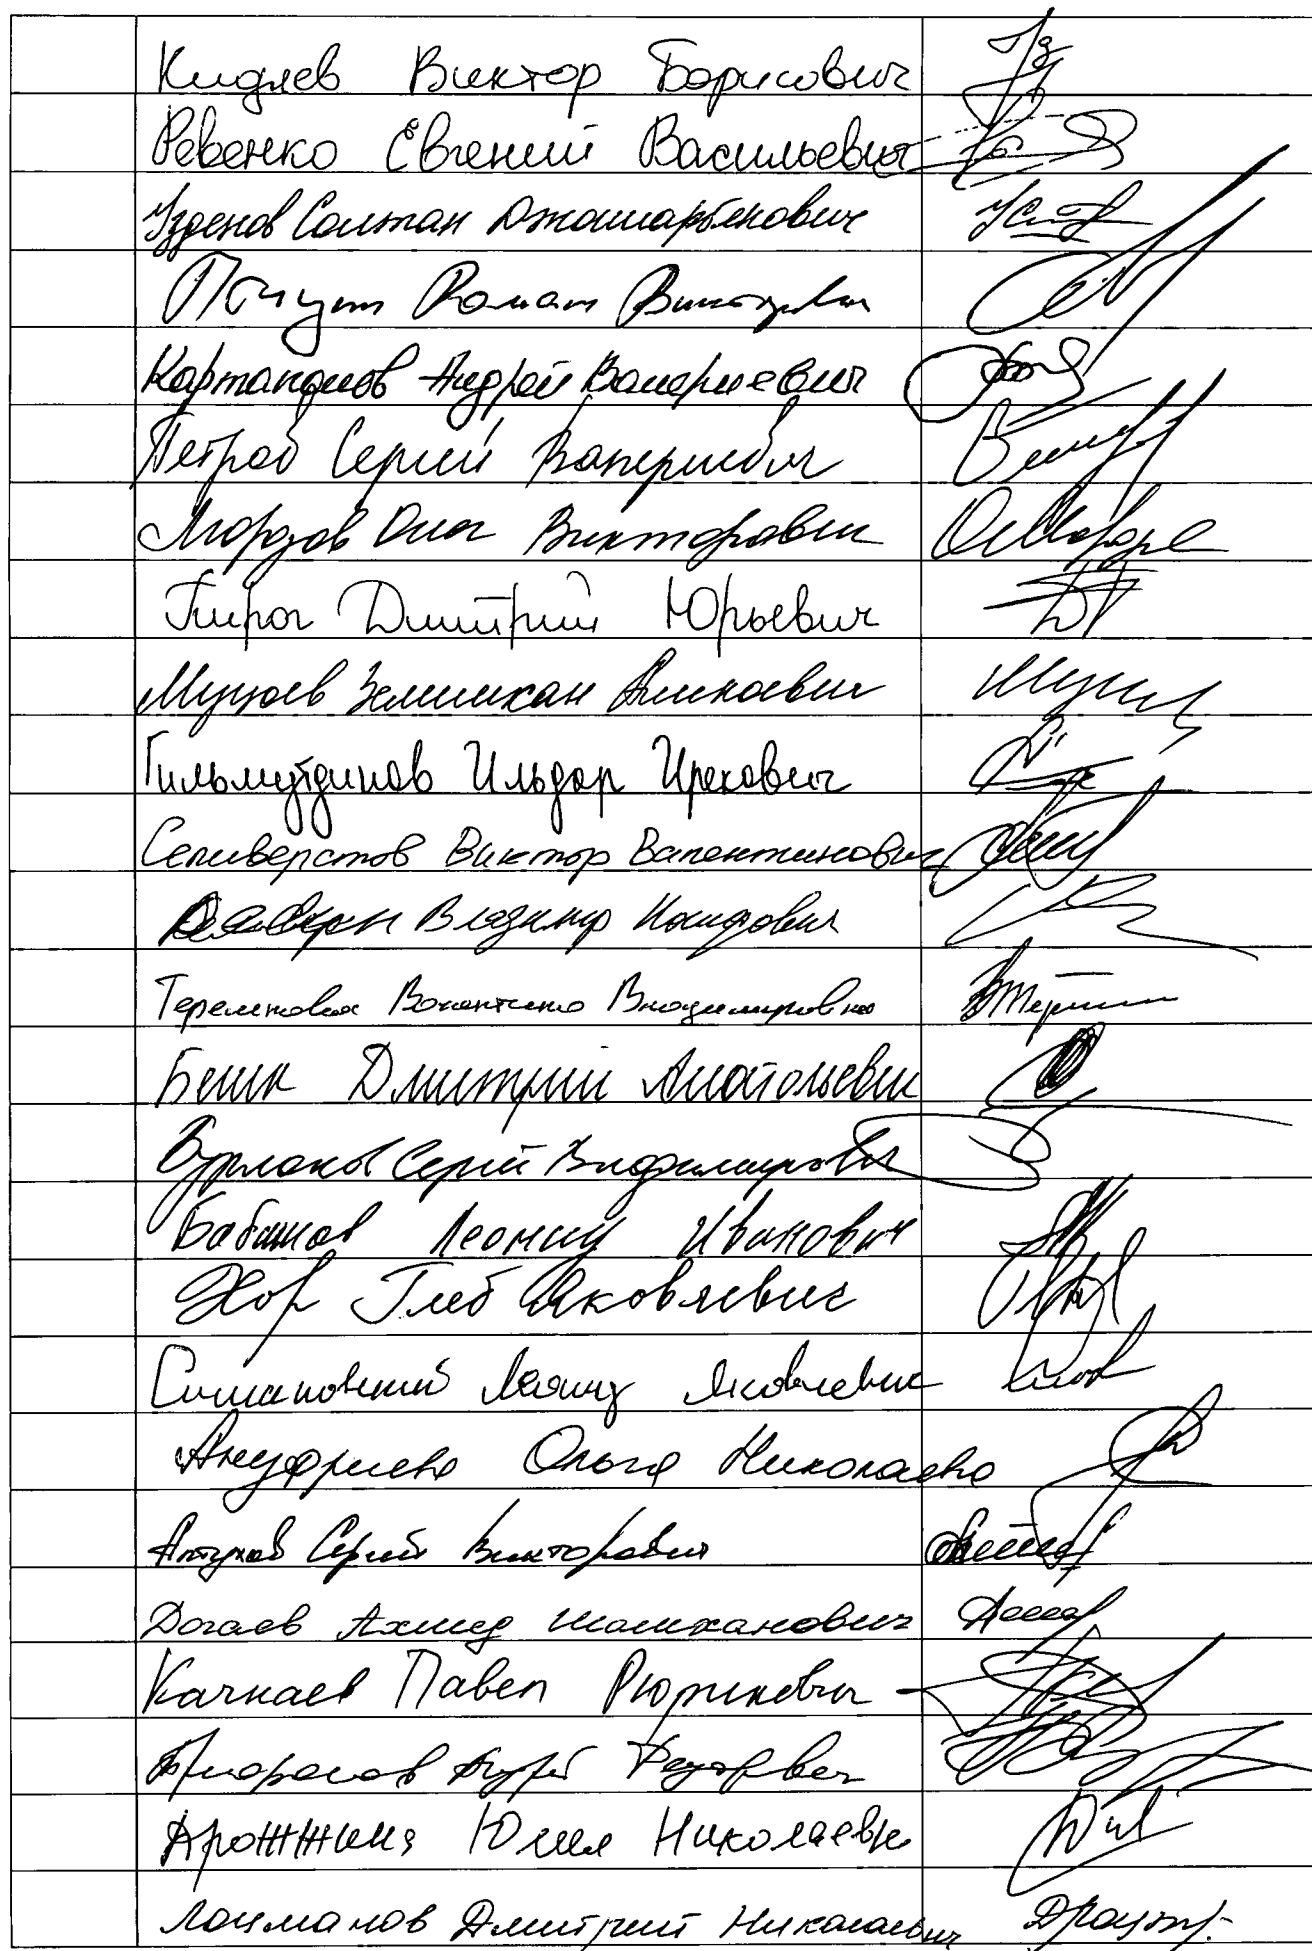 Кидяев Виктор Борисович
Ревенко Евгений Васильевич
Узденов Солтан Джашарбекович
Романт Викторович
Картаполов Андрей Валериевич
Петров Сергей Валериевич
Морозов Олег Викторович
Пирог Дмитрий Юрьевич
Муцоев Зелимхан Аликоевич
Гильмутдинов Ильдар Ирекович
Селиверстов Виктор Валентинович
Владимир
Терешкова Валентина Владимировна
Бешк Дмитрий Анатольевич
Бурлаков Сергей Владимирович
Бабашов Леонид Иванович
Хор Глеб Яковлевич
Симановский Леонид Яковлевич
Ануфриева Ольга Николаевна
Алтухов Сергей Викторович
Догаев Ахмед Шамханович
Качкаев Павел Рюрикович
Федорович
Дрожжина Юлия Николаевн
Лоцманов Дмитрий Николаевич